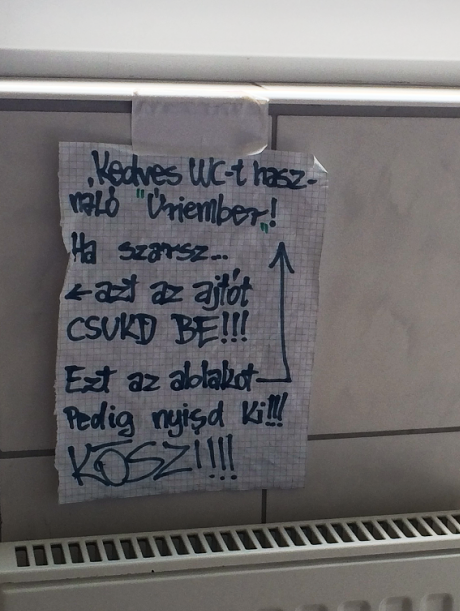 Kedves WC-t hasz-
náló "Úriember"!
Ha szarsz...
← azt az ajtót
CSUKD BE!!!
Ezt az ablakot
Pedig nyisd ki!!!
KÖSZI!!!!